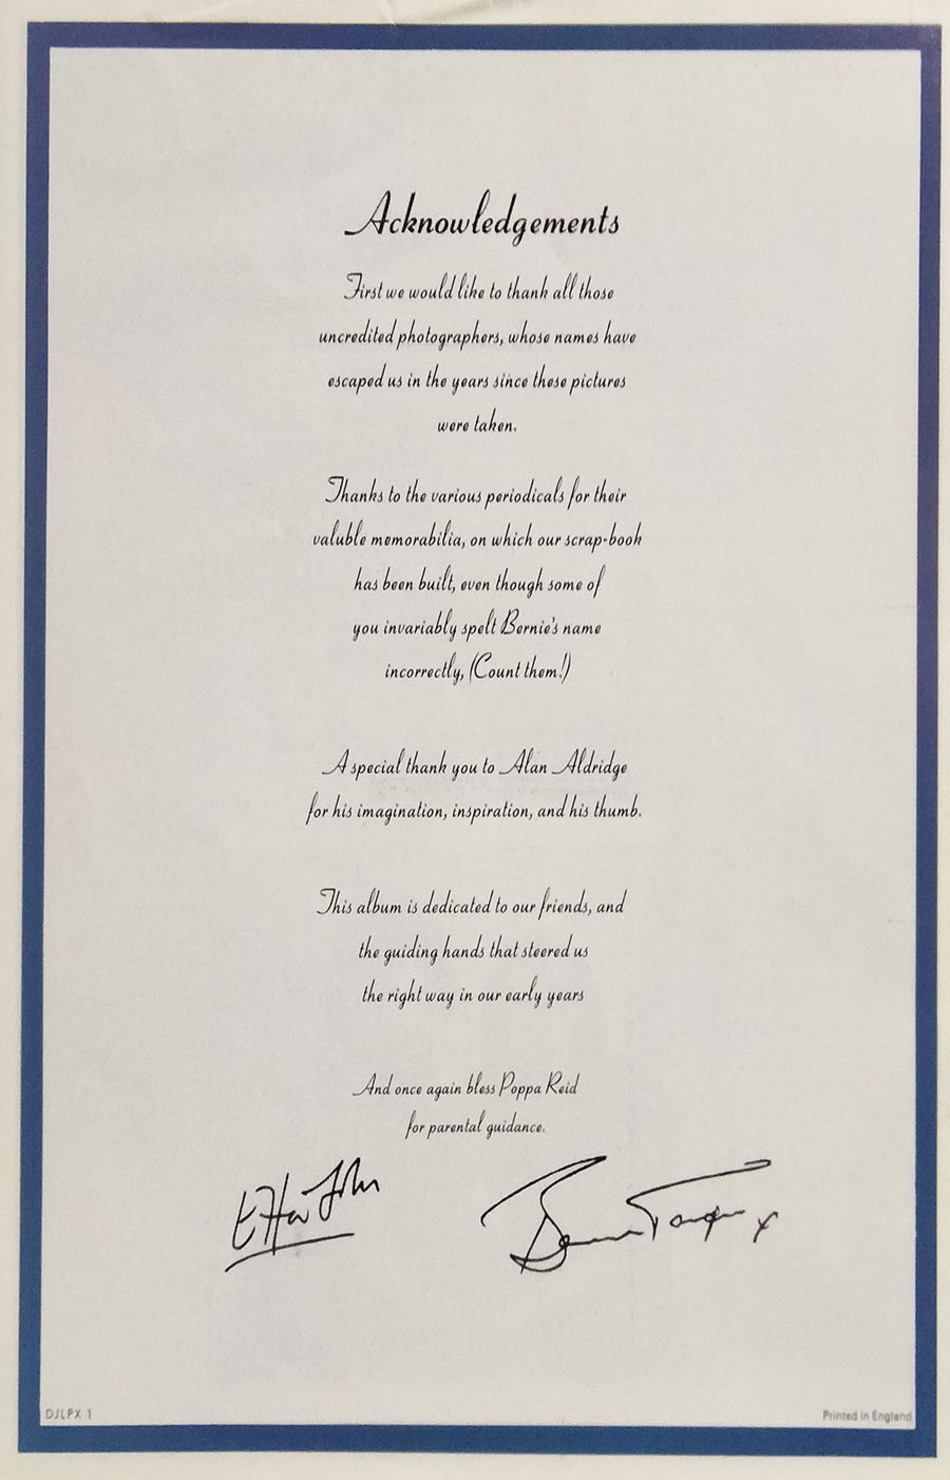 Acknowledgements
First we would like to thank all those
uncredited photographers, whose names have
escaped us in the years since these pictures
were taken.
Thanks to the various periodicals for their
valuble memorabilia, on which our scrap-book
has been built, even though some of
you invariably spelt Bernie's name
incorrectly, (Count them!)
A special thank you to Alan Aldridge
for his imagination, inspiration, and his thumb.
This album is dedicated to our friends, and
the guiding hands that steered us
the right way in our early years
And once again bless Poppa Reid
for parental guidance.
Elton John
Bernie Taupin x
DJLPX 1
Printed in England